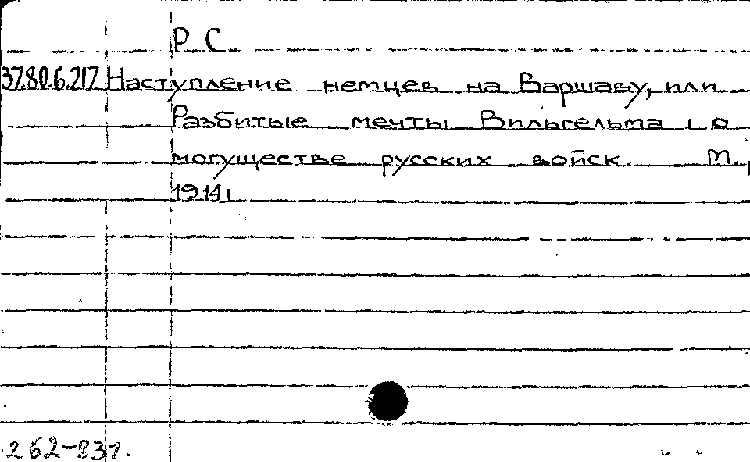 Р С
3780.6.217 Наступление немцев на Варшаву, или
Разбитые мечты Вильгельма о
могуществе русских войск. М.,
1914.
262-83г.